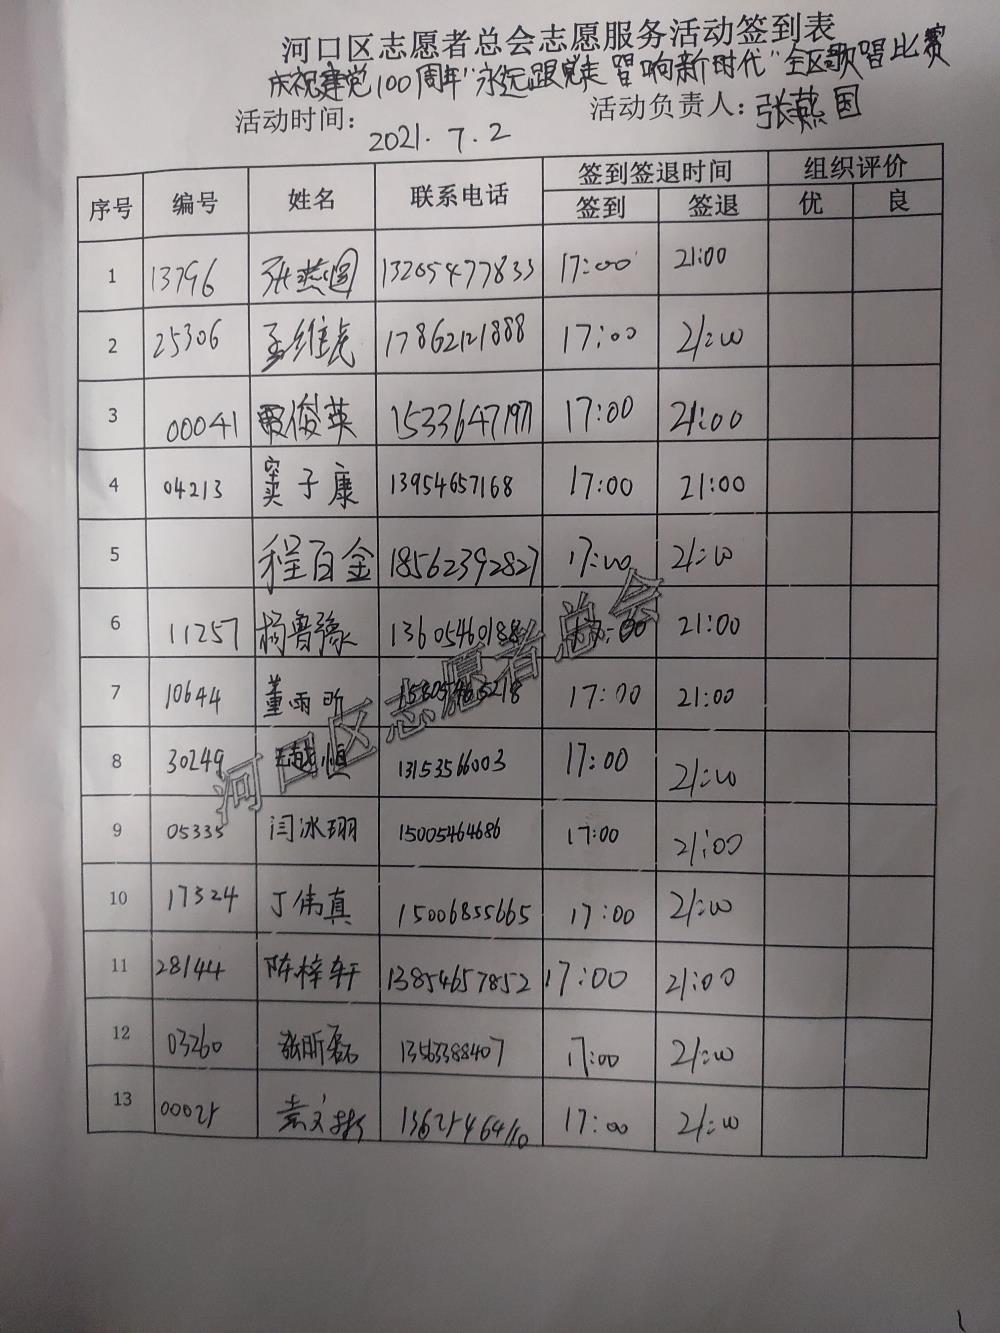 河口区志愿者总会志愿服务活动签到表
庆祝建党100周年"永远跟党走 唱响新时代"全区歌唱比赛
活动时间: 2021.7.2 活动负责人: 张燕国
序号 编号 姓名 联系电话 签到签退时间 组织评价
签到 签退 优 良
1 13796 张燕国 13205477833 17:00 21:00
2 25306 孟维虎 17862121888 17:00 21:00
3 00041 俊英 15336471971 17:00 21:00
4 04213 窦子康 13954657168 17:00 21:00
5 程百金 18562392827 17:00 21:00
6 11257 杨鲁豫 13605460188 21:00
7 10644 董雨昕 17:00 21:00
8 30249 17:00 21:00
9 05335 闫冰珝 15005464686 17:00 21:00
10 17324 丁伟真 15006855665 17:00 21:00
11 28144 陈梓轩 13854657852 17:00 21:00
12 03260 张昕磊 13563388407 17:00 21:00
13 袁文 17:00 21:00
河口区志愿者总会